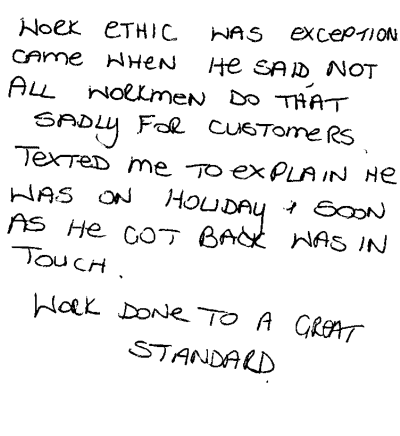 WORK ETHIC WAS EXCEPTION
CAME WHEN HE SAID, NOT
ALL WORKMEN DO THAT
SADLY FOR CUSTOMERS.
TEXTED ME TO EXPLAIN HE
WAS ON HOLIDAY & SOON
AS HE GOT BACK WAS IN
TOUCH.
WORK DONE TO A GREAT
STANDARD.